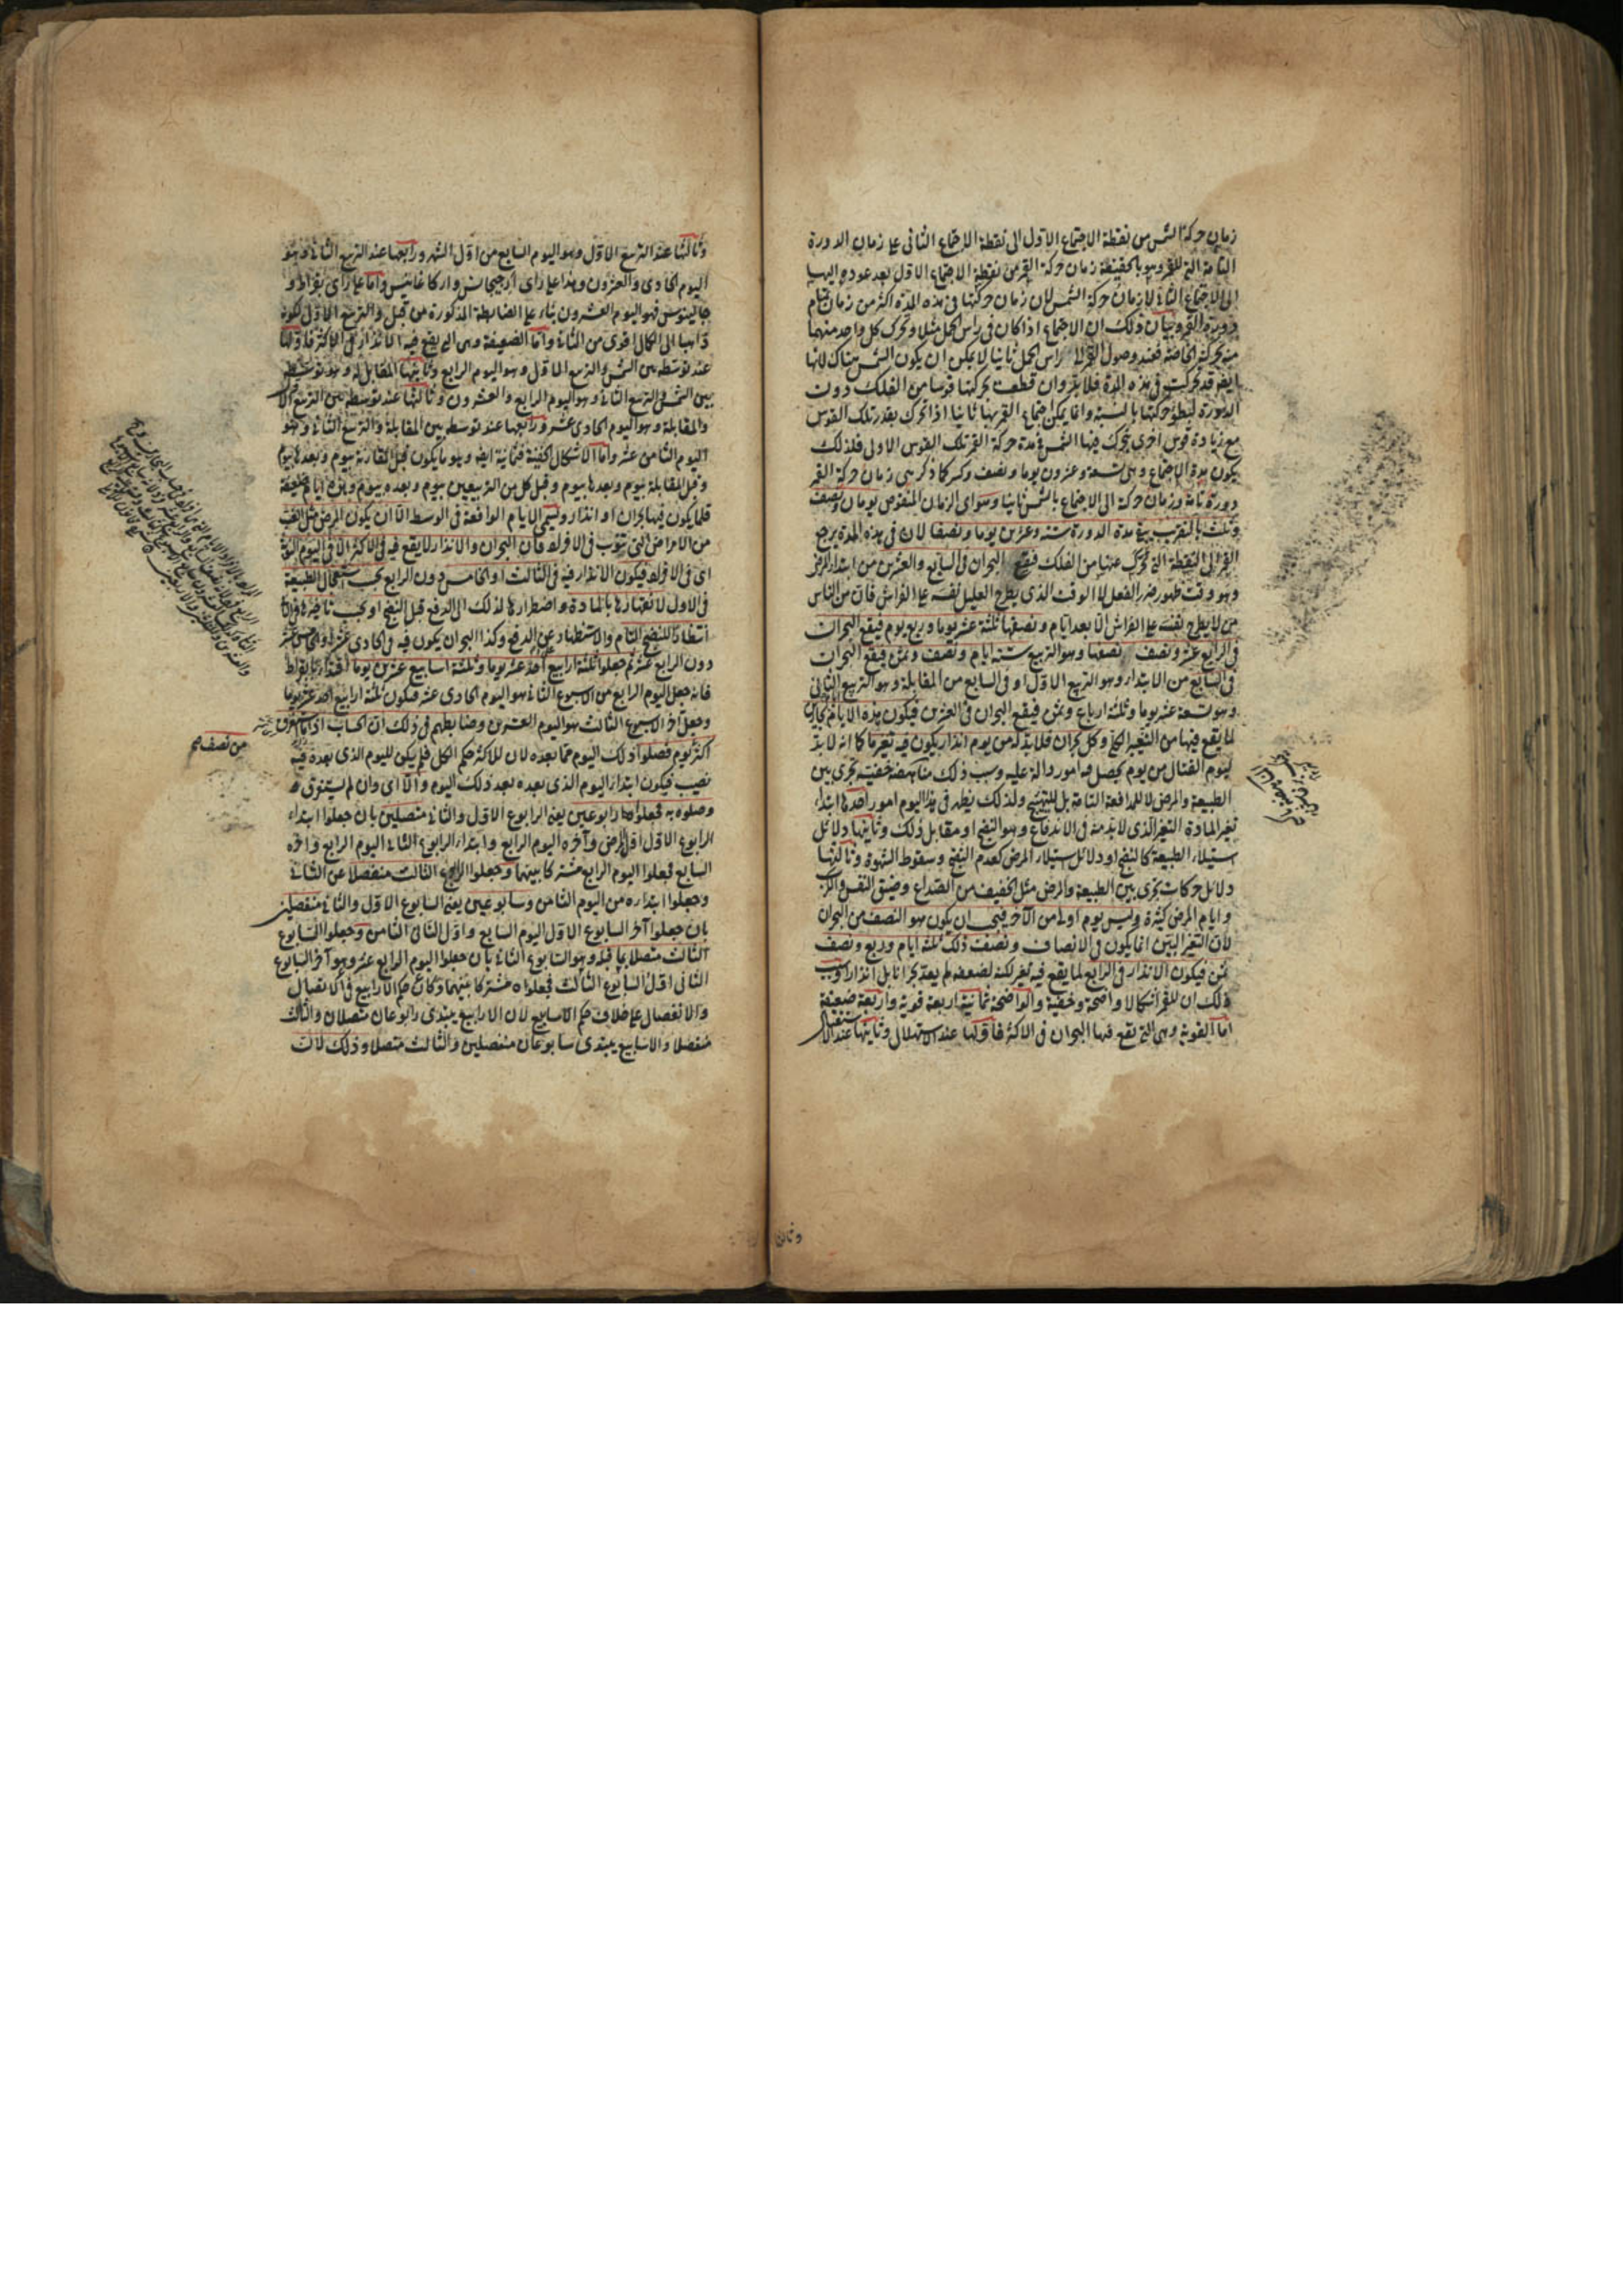 زمان حركة الشمس من نقطة الاجتماع الاول الى نقطة الاجتماع الثانى على زمان الدورة
التامة التى للقمر وهو بالحقيقة زمان حركة القمر من نقطة الاجتماع الاول بعد عوده اليها
الى الاجتماع الثانى لا زمان حركة الشمس لان زمان حركتها فى هذه المدة اكثر من زمان تمام
دورة القمر وبيان ذلك ان الاجتماع اذا كان فى راس الحمل مثلا وتحرك كل واحد منهما
منه بحركته الخاصة فعند وصول القمر الى راس الحمل ثانيا لا يمكن ان يكون الشمس هناك لانها
ايضا قد تحركت فى هذه المدة فلابد وان قطعت بحركتها قوسا من الفلك دون
الدورة لبطؤ حركتها بالنسبة وانما يمكن اجتماع القمر بها ثانيا اذا تحرك بقدر تلك القوس
مع زيادة قوس اخرى يتحرك فيها الشمس فى مدة حركة القمر تلك القوس الاولى فلذلك
يكون مدة الاجتماع وهى تسعة وعشرون يوما ونصف وكسر كما ذكر هى زمان حركة القمر
دورة تامة وزمان حركته الى الاجتماع بالشمس ثانيا وسواى الزمان المنقوص يومان ونصف
وثلث بالتقريب يبقى مدة الدورة ستة وعشرين يوما ونصفا لان فى هذه المدة يرجع
القمر الى النقطة التى تحرك عنها من الفلك فيقع البحران فى السابع والعشرين من ابتداء المرض
وهو وقت ظهور ضرر الفعل لا الوقت الذى يطرح العليل نفسه على الفراش فان من الناس
من لا يطرح نفسه على الفراش الا بعد ايام ونصفها ثلثة عشر يوما وربع يوم فيقع البحران
فى الرابع عشر ونصف نصفها وهو التربيع ستة ايام ونصف وثمن فيقع البحران
فى السابع من الابتداء وهو التربيع الاول او فى السابع من المقابلة وهو التربيع الثانى
وهو تسعة عشر يوما وثلثة ارباع وثمن فيقع البحران فى العشرين فيكون هذه الايام بحارين
لما يقع فيها من التغير وكل بحران فلابد له من يوم انذار يكون فيه تغير ما كما انه لابد
ليوم القتال من يوم يحصل فيه امور دالة عليه وسبب ذلك مناهضة خفيفة تجرى بين
الطبيعة والمرض لا للمدافعة التامة بل للتهيئ ولذلك يظهر فى هذا اليوم امور احدها ابتداء
تغير المادة التغير الذى لابد منه فى الاندفاع وهو النضج او مقابل ذلك وثانيها دلائل
استيلاء الطبيعة كالنضج او دلائل استيلاء المرض كعدم النضج وسقوط الشهوة وثالثها
دلائل حركات تجرى بين الطبيعة والمرض مثل الخفيف من الصداع وضيق النفس والكرب
وايام المرض كثيرة وليس يوم اولى من الآخر فيجب ان يكون هو النصف من البحران
لان التغير البين انما يكون فى الانصاف ونصف ذلك ثلثة ايام وربع ونصف
ثمن فيكون الانذار فى الرابع لما يقع فيه تغير لكنه لضعفه لم يعد بحرانا بل انذارا وسبب
ذلك ان للقمر اشكالا واضحة وخفية والواضحة ثمانية اربعة قوية واربعة ضعيفة
اما القوية وهى التى تقع فيها البحران فى الاكثر فاولها عند الاستهلال وثانيها عند الاستقبال
وثالثها عند التربيع الاول وهو اليوم السابع من اول الشهر ورابعها عند التربيع الثانى وهو
اليوم الحادى والعشرون وهذا على راى ارجيجانس واركاغانيس واما على راى بقراط و
جالينوس فهو اليوم العشرون بناء على الضابطة المذكورة من قبل والتربيع الاول لكونه
ذاهبا الى الكمال اقوى من الثانى واما الضعيفة وهى التى يقع فيه الانذار فى الاكثر فاولها
عند توسطه بين الشمس والتربيع الاول وهو اليوم الرابع وثانيها المقابل له وهو توسطه
بين الشمس والتربيع الثانى وهو اليوم الرابع والعشرون وثالثها عند توسطه بين التربيع الاول
والمقابلة وهو اليوم الحادى عشر ورابعها عند توسطه بين المقابلة والتربيع الثانى وهو
اليوم الثامن عشر واما الاشكال الخفية فثمانية ايضا وهو ما يكون قبل المقارنة بيوم وبعدها بيوم
وقبل المقابلة بيوم وبعدها بيوم وقبل كل من التربيعين بيوم وبعده بيوم وهذه ايام ضعيفة
قلما يكون فيها بحران او انذار وليسمى الايام الواقعة فى الوسط الا ان يكون المرض مثل الغب
من الامراض التى تنوب فى الافراد فان البحران والانذار لا يقع فيه فى الاكثر الا فى اليوم النوبة
اى فى الافراد فيكون الانذار فيه فى الثالث او الخامس دون الرابع بحسب استعجال الطبيعة
فى الاول لانتهازها بالمادة واضطرارها لذلك الى الدفع قبل النضج او بحسب تاخيرها
انتظارا للنضج التام والاستظهار على الدفع وكذا البحران يكون فيه فى الحادى عشر او الخامس عشر
دون الرابع عشر ثم جعلوا ثلثة ارابيع احد عشر يوما وثلثة اسابيع عشرين يوما اقتداء ببقراط
فانه جعل اليوم الرابع من الاسبوع الثانى هو اليوم الحادى عشر فيكون ثلثة ارابيع احد عشر يوما
وجعل آخر الاسبوع الثالث هو اليوم العشرين وضابطهم فى ذلك ان الحساب اذا استغرق
من نصف صح
اكثر يوم فصلوا ذلك اليوم عما بعده لان للاكثر حكم الكل فلم يكن لليوم الذى بعده فيه
نصيب فيكون ابتداء اليوم الذى بعده بعد ذلك اليوم والا اى وان لم يستغرق
وصلوه به فجعلوا رابوعين يعنى الرابوع الاول والثانى متصلين بان جعلوا ابتداء
الرابوع الاول اول المرض وآخره اليوم الرابع وابتداء الرابوع الثانى اليوم الرابع وآخره
السابع فجعلوا اليوم الرابع مشتركا بينهما وجعلوا الرابوع الثالث منفصلا عن الثانى
وجعلوا ابتداءه من اليوم الثامن وسابوعين يعنى السابوع الاول والثانى منفصلين
بان جعلوا آخر السابوع الاول اليوم السابع واول الثانى الثامن وجعلوا السابوع
الثالث متصلا بما قبله وهو السابوع الثانى بان جعلوا اليوم الرابع عشر وهو آخر السابوع
الثانى اول السابوع الثالث فجعلوه مشتركا بينهما وكان حكم الارابيع فى الاتصال
والانفصال على خلاف حكم الاسابيع لان الارابيع يبتدى رابوعان متصلان والثالث
منفصلا والاسابيع يبتدى سابوعان منفصلين والثالث متصلا وذلك لان